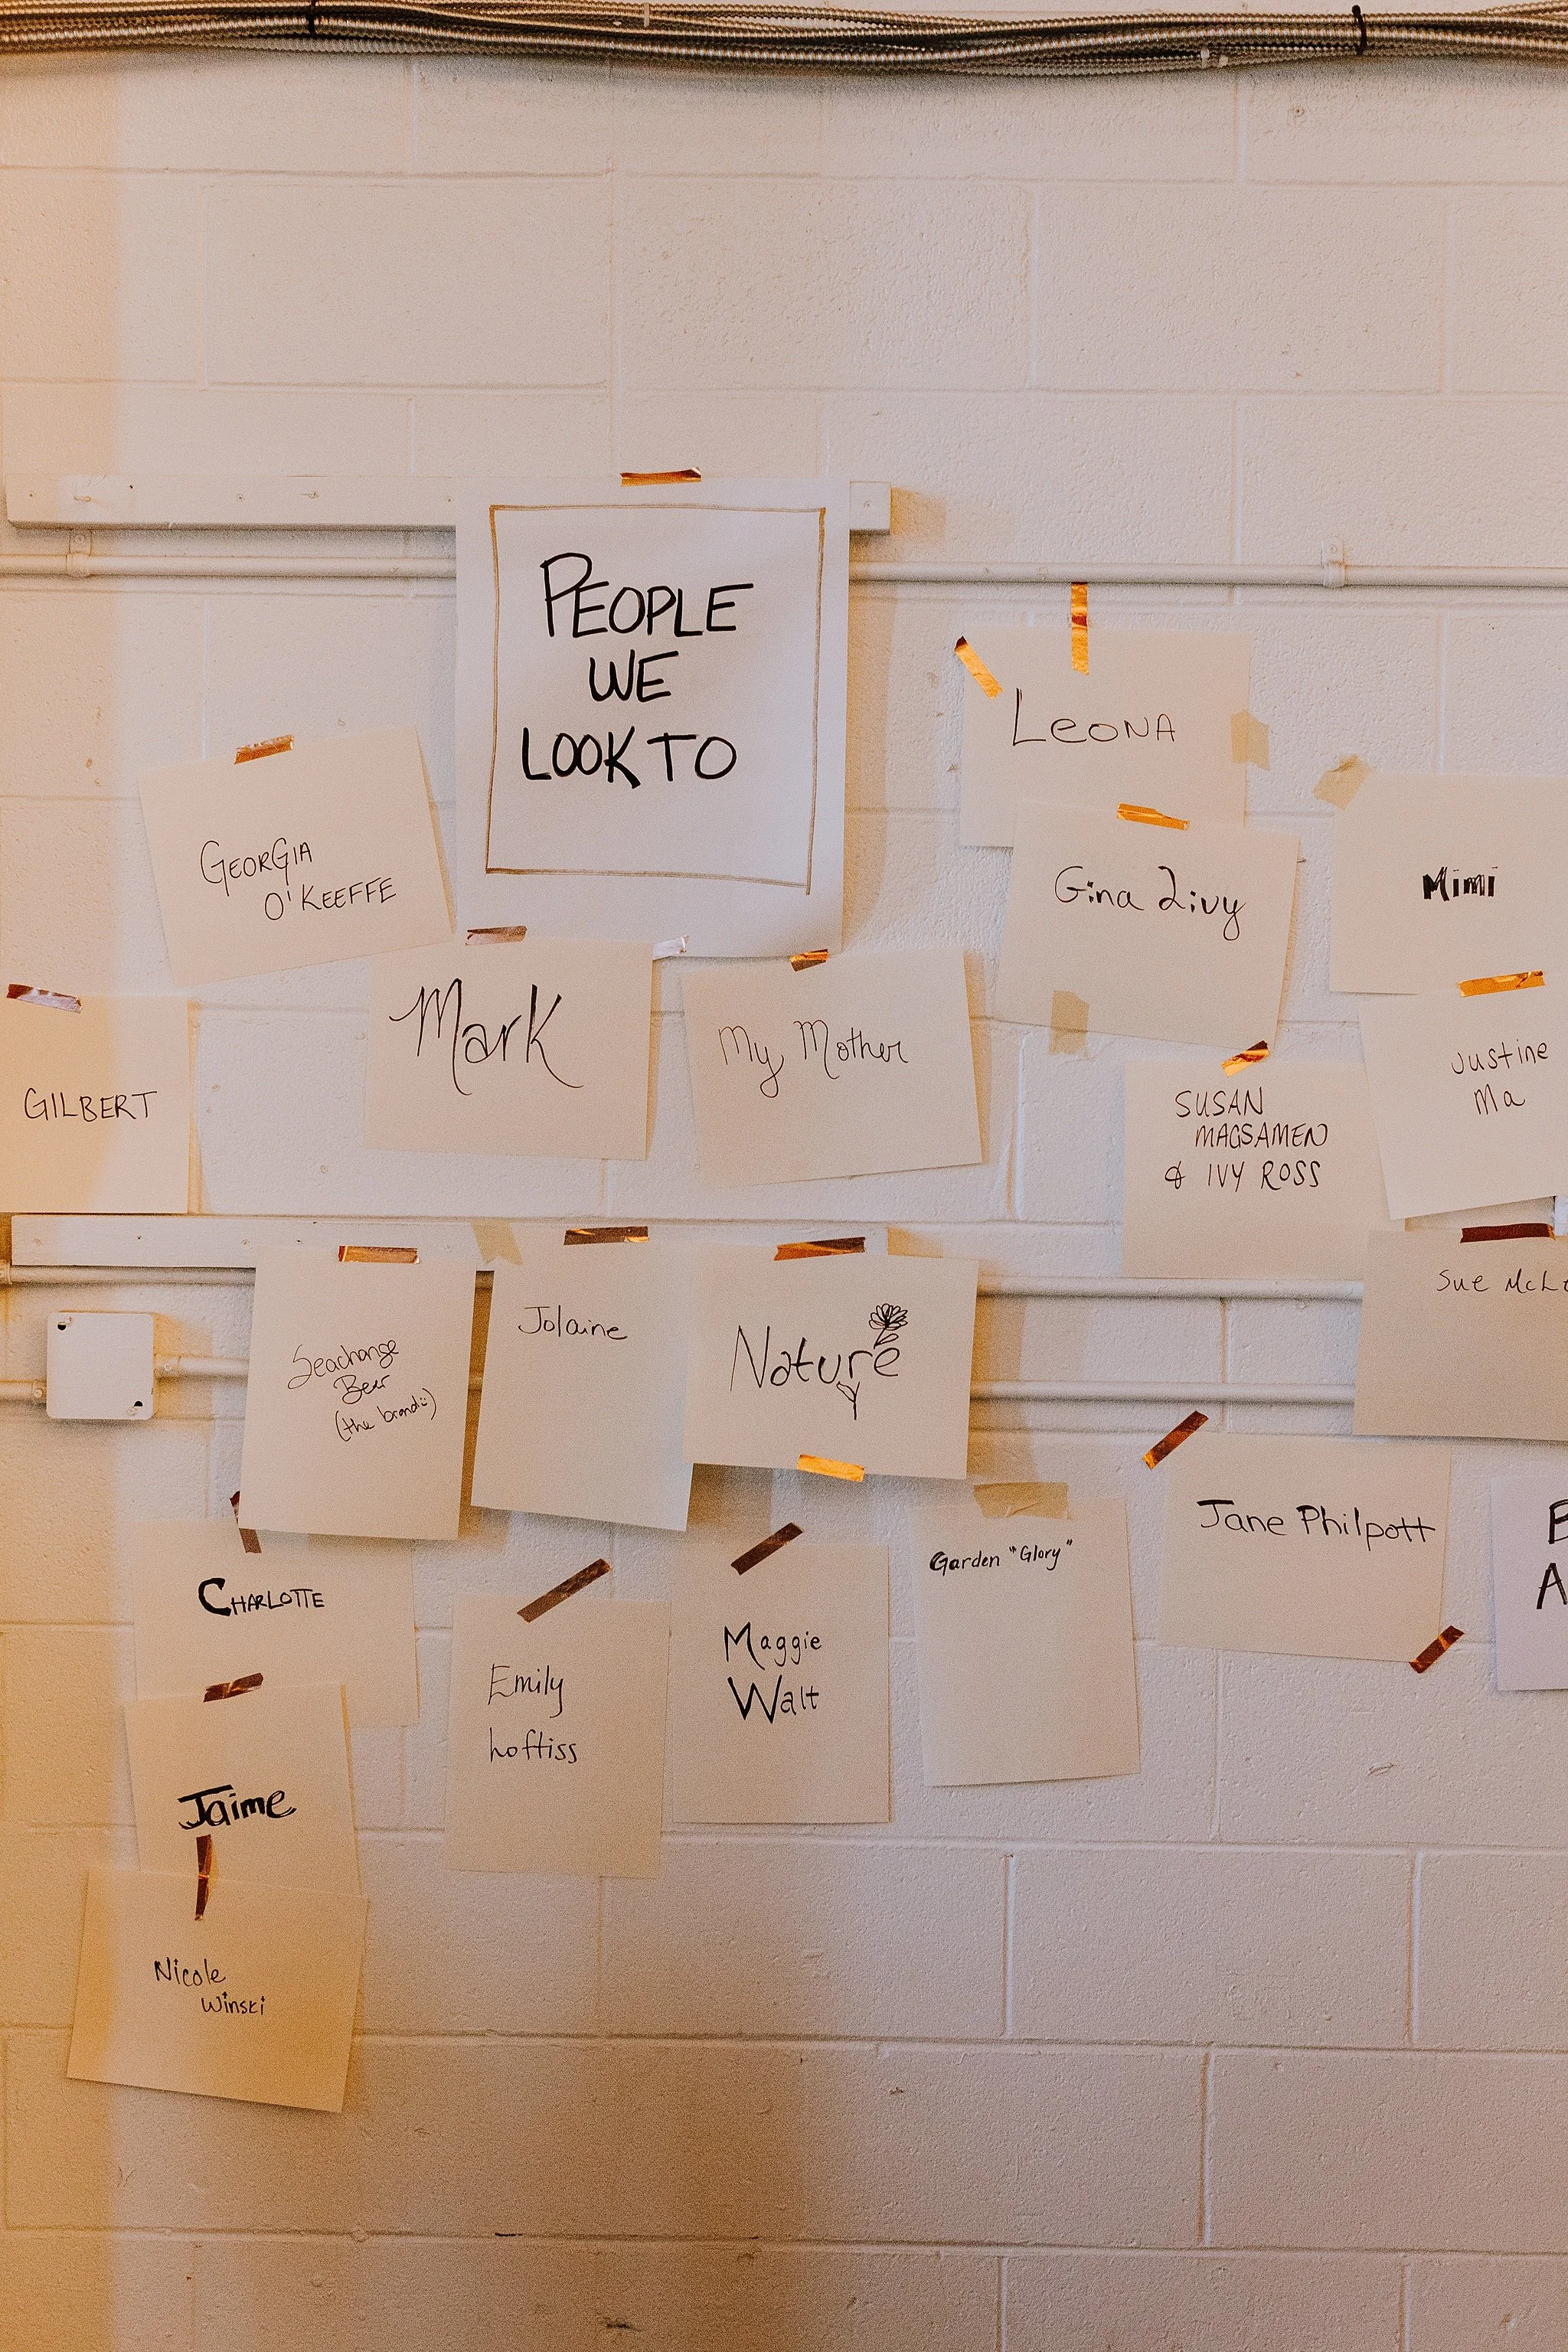 PEOPLE
WE
LOOK TO
LEONA
GEORGIA
O'KEEFFE
Gina Livy
Mimi
Mark
My Mother
GILBERT
Justine
Ma
SUSAN
MAGSAMEN
& IVY ROSS
Sue
Seachange
Beer
(the brand :))
Jolaine
Nature
Jane Philpott
Garden "Glory"
CHARLOTTE
Emily
Loftiss
Maggie
Walt
Jaime
Nicole
Winski